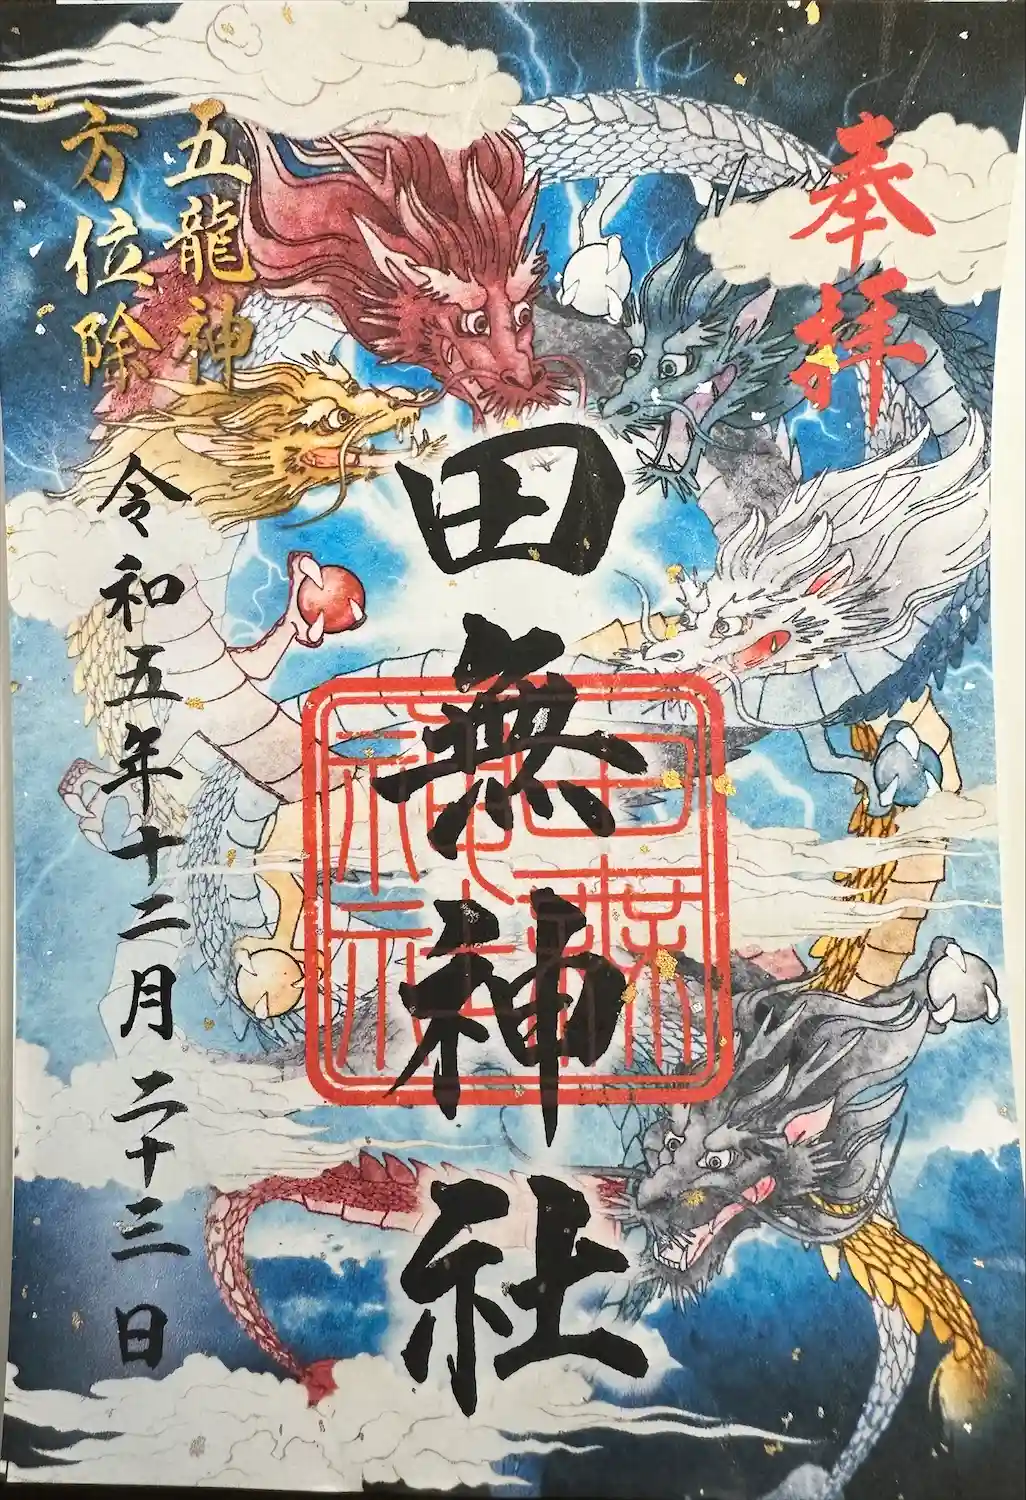 奉拝
田無神社
五龍神
方位除
令和五年十二月二十三日